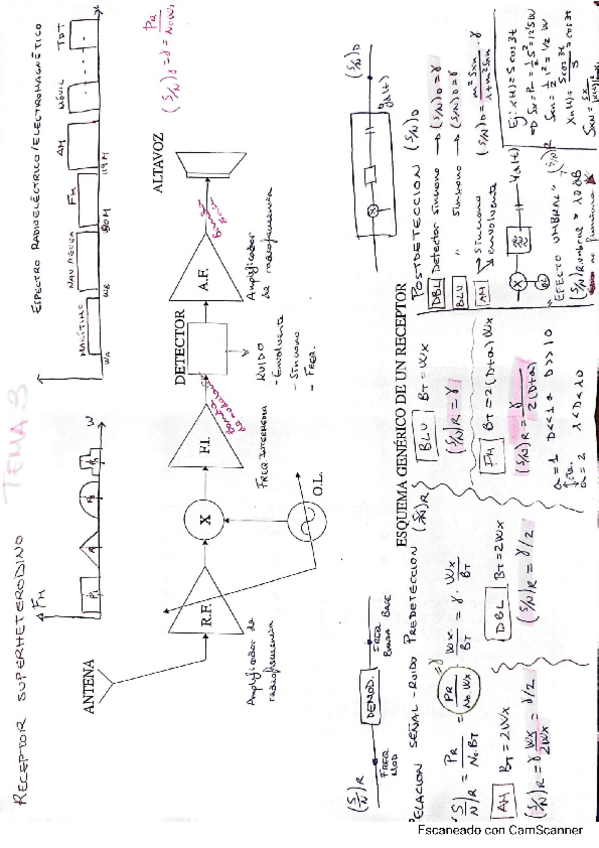 TEMA 3
RECEPTOR SUPERHETERODINO
ESPECTRO RADIOELÉCTRICO/ELECTROMAGNÉTICO
FM
P1
W
MARÍTIMO
NAVAGUER
FM
AM
MÓVIL
TDT
WA
WB
80M
119M
(S/N)D = γ = PR/N0·Wx
ANTENA
R.F.
X
F.I.
DETECTOR
A.F.
ALTAVOZ
Amplificador de
radiofrecuencia
FREQ INTERMEDIA
Amplificador
de radiofrecuencia
O.L.
RUIDO
- Envolvente
- Síncrono
- FREQ.
ESQUEMA GENÉRICO DE UN RECEPTOR
(S/N)R
DEMOD.
FREQ
MOD
FREQ
BANDA BASE
(S/N)D
yd(t)
RELACION SEÑAL-RUIDO PREDETECCION (S/N)R
(S/N)R = PR/N0·BT = PR/N0·Wx · Wx/BT = γ · Wx/BT
AM BT = 2Wx
(S/N)R = γ Wx/2Wx = γ/2
DBL BT = 2Wx
(S/N)R = γ/2
BLU BT = Wx
(S/N)R = γ
FM BT = 2(D+a)Wx
(S/N)R = γ/2(D+a)
a = 1 D<<1 o D>>10
a = 2 1<D<10
POSTDETECCION (S/N)D
DBL Detector síncrono → (S/N)D = γ
BLU " síncrono → (S/N)D = γ
AM síncrono
envolvente
(S/N)D = m²Sxn/1+m²Sxn · γ
X
yd(t)
"EFECTO UMBRAL"
(S/N)R
(S/N)R UMBRAL = 10 dB
Ej: x(t) = 5 cos 3t
Sxn = 1/2 1² = 1/2 W
Xn(t) = 5cos3t/5 = cos 3t
Escaneado con CamScanner